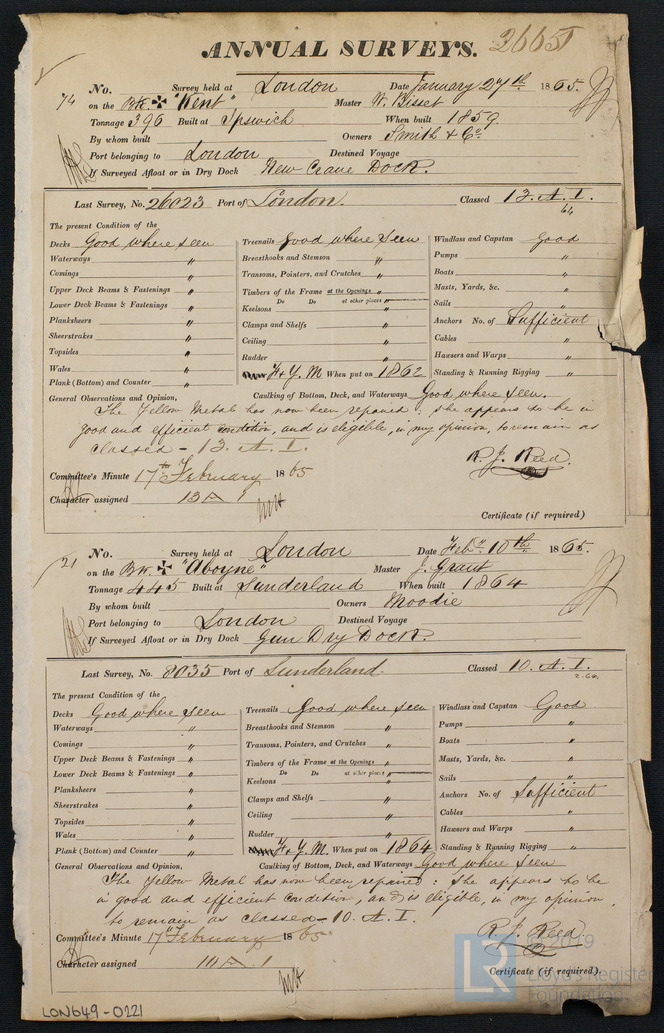 ANNUAL SURVEYS. 26651
74 No. Survey held at London Date January 27th 1865.
on the Bk. "Kent" Master W. Bisset
Tonnage 396 Built at Ipswich When built 1859
By whom built Owners Smith & Co.
Port belonging to London Destined Voyage
If Surveyed Afloat or in Dry Dock New Crane Dock.
Last Survey, No. 26023 Port of London. Classed 13. A. I.
64
The present Condition of the
Decks Good where seen Treenails Good where seen Windlass and Capstan Good
Waterways " Breasthooks and Stemson " Pumps "
Comings " Transoms, Pointers, and Crutches " Boats "
Upper Deck Beams & Fastenings " Timbers of the Frame at the Openings " Masts, Yards, &c. "
Do Do at other places "
Lower Deck Beams & Fastenings " Keelsons " Sails "
Planksheers " Clamps and Shelfs " Anchors No. of Sufficient
Sheerstrakes " Ceiling " Cables "
Topsides " Rudder " Hawsers and Warps "
Wales " F & Y. M When put on 1862 Standing & Running Rigging "
Plank (Bottom) and Counter "
General Observations and Opinion, Caulking of Bottom, Deck, and Waterways Good where seen.
The Yellow Metal has now been repaired: she appears to be in
good and efficient condition, and is eligible, in my opinion, to remain as
classed - 13. A. I.
R. J. Reed.
Committee's Minute 17th February 1865
Character assigned 13 A 1
Certificate (if required)
21 No. Survey held at London Date Feby. 10th 1865.
on the Bk. "Aboyne" Master J. Grant
Tonnage 445 Built at Sunderland When built 1864
By whom built Owners Moodie
Port belonging to London Destined Voyage
If Surveyed Afloat or in Dry Dock Gun Dry Dock.
Last Survey, No. 8035 Port of Sunderland. Classed 10. A. I.
2.64
The present Condition of the
Decks Good where seen Treenails Good where seen Windlass and Capstan Good
Waterways " Breasthooks and Stemson " Pumps "
Comings " Transoms, Pointers, and Crutches " Boats "
Upper Deck Beams & Fastenings " Timbers of the Frame at the Openings " Masts, Yards, &c. "
Do Do at other places "
Lower Deck Beams & Fastenings " Keelsons " Sails "
Planksheers " Clamps and Shelfs " Anchors No. of Sufficient
Sheerstrakes " Ceiling " Cables "
Topsides " Rudder " Hawsers and Warps "
Wales " F & Y. M. When put on 1864 Standing & Running Rigging "
Plank (Bottom) and Counter "
General Observations and Opinion, Caulking of Bottom, Deck, and Waterways Good where seen
The Yellow Metal has now been repaired: she appears to be
in good and efficient condition, and is eligible, in my opinion,
to remain as classed - 10. A. I.
R. J. Reed.
Committee's Minute 17th February 1865
Character assigned 10 A 1
Certificate (if required).
LR © 2019
Lloyd's Register
Foundation
LON649-0221